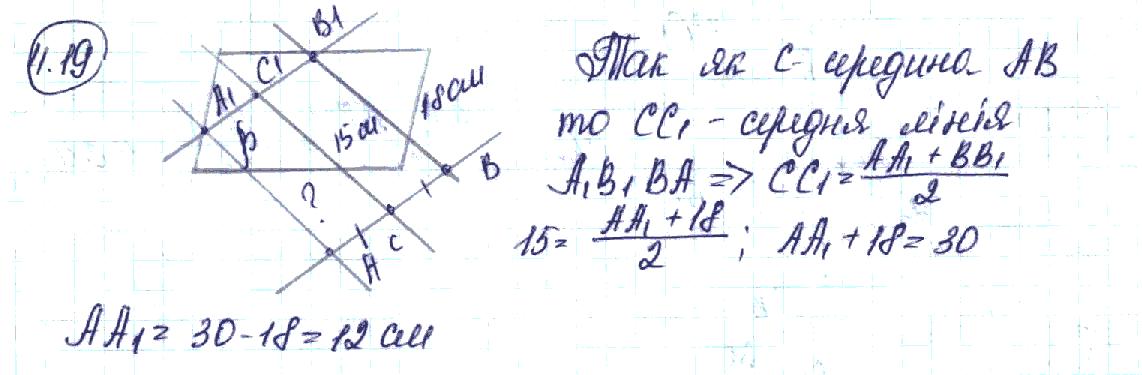 4.19
B1
C1
A1
β
15 см.
18 см
?
B
C
A
Так як C - середина AB
то CC₁ - середня лінія
A₁B₁BA => CC₁ = (AA₁ + BB₁)/2
15 = (AA₁ + 18)/2 ; AA₁ + 18 = 30
AA₁ = 30 - 18 = 12 см